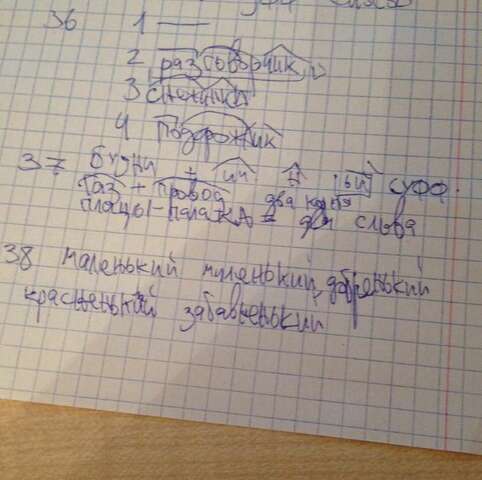 36 1 —
2 разговорчик
3 снежинка
4 подорожник
37 будни + ий н ый суфф.
газ + провод два корня
плащы-палатка = два слова
38 маленький миленький, добренький
красненький забавненький